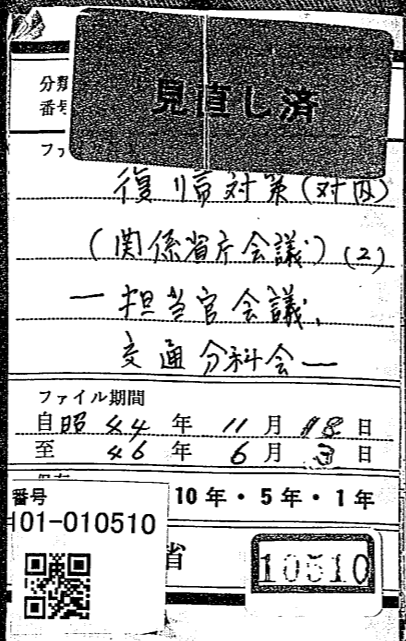 分類
番号
見直し済
ファ
復帰対策(対内)
(関係省庁会議)(2)
一担当官会議、
交通分科会一
ファイル期間
自昭44年11月18日
至46年6月3日
10年・5年・1年
番号
H01-010510
省
10510